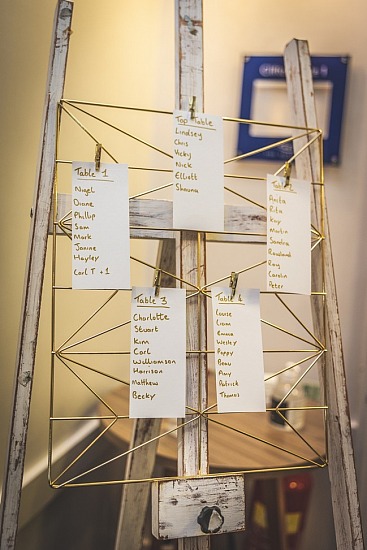 Top Table
Lindsey
Chris
Vicky
Nick
Elliott
Shauna
Table 1
Nigel
Dianne
Phillip
Sam
Mark
Janine
Hayley
Carl T +1
Table 2
Anita
Rita
Kay
Martin
Sandra
Rosalund
Ray
Carolin
Peter
Table 3
Charlotte
Stuart
Kim
Carl
Williamson
Harrison
Matthew
Becky
Table 4
Louise
Liam
Emma
Wesley
Poppy
Beau
Amy
Patrick
Thomas